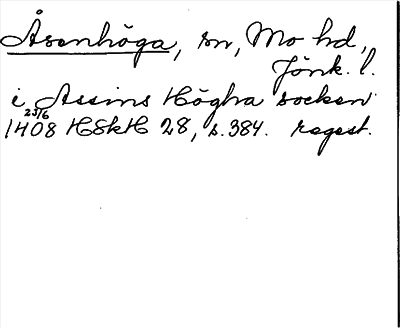 Åsenhöga, sn, Mo hd,
Jönk. l.
i Assins Högha socken
25/6
1408 HSkH 28, s. 384. regest.